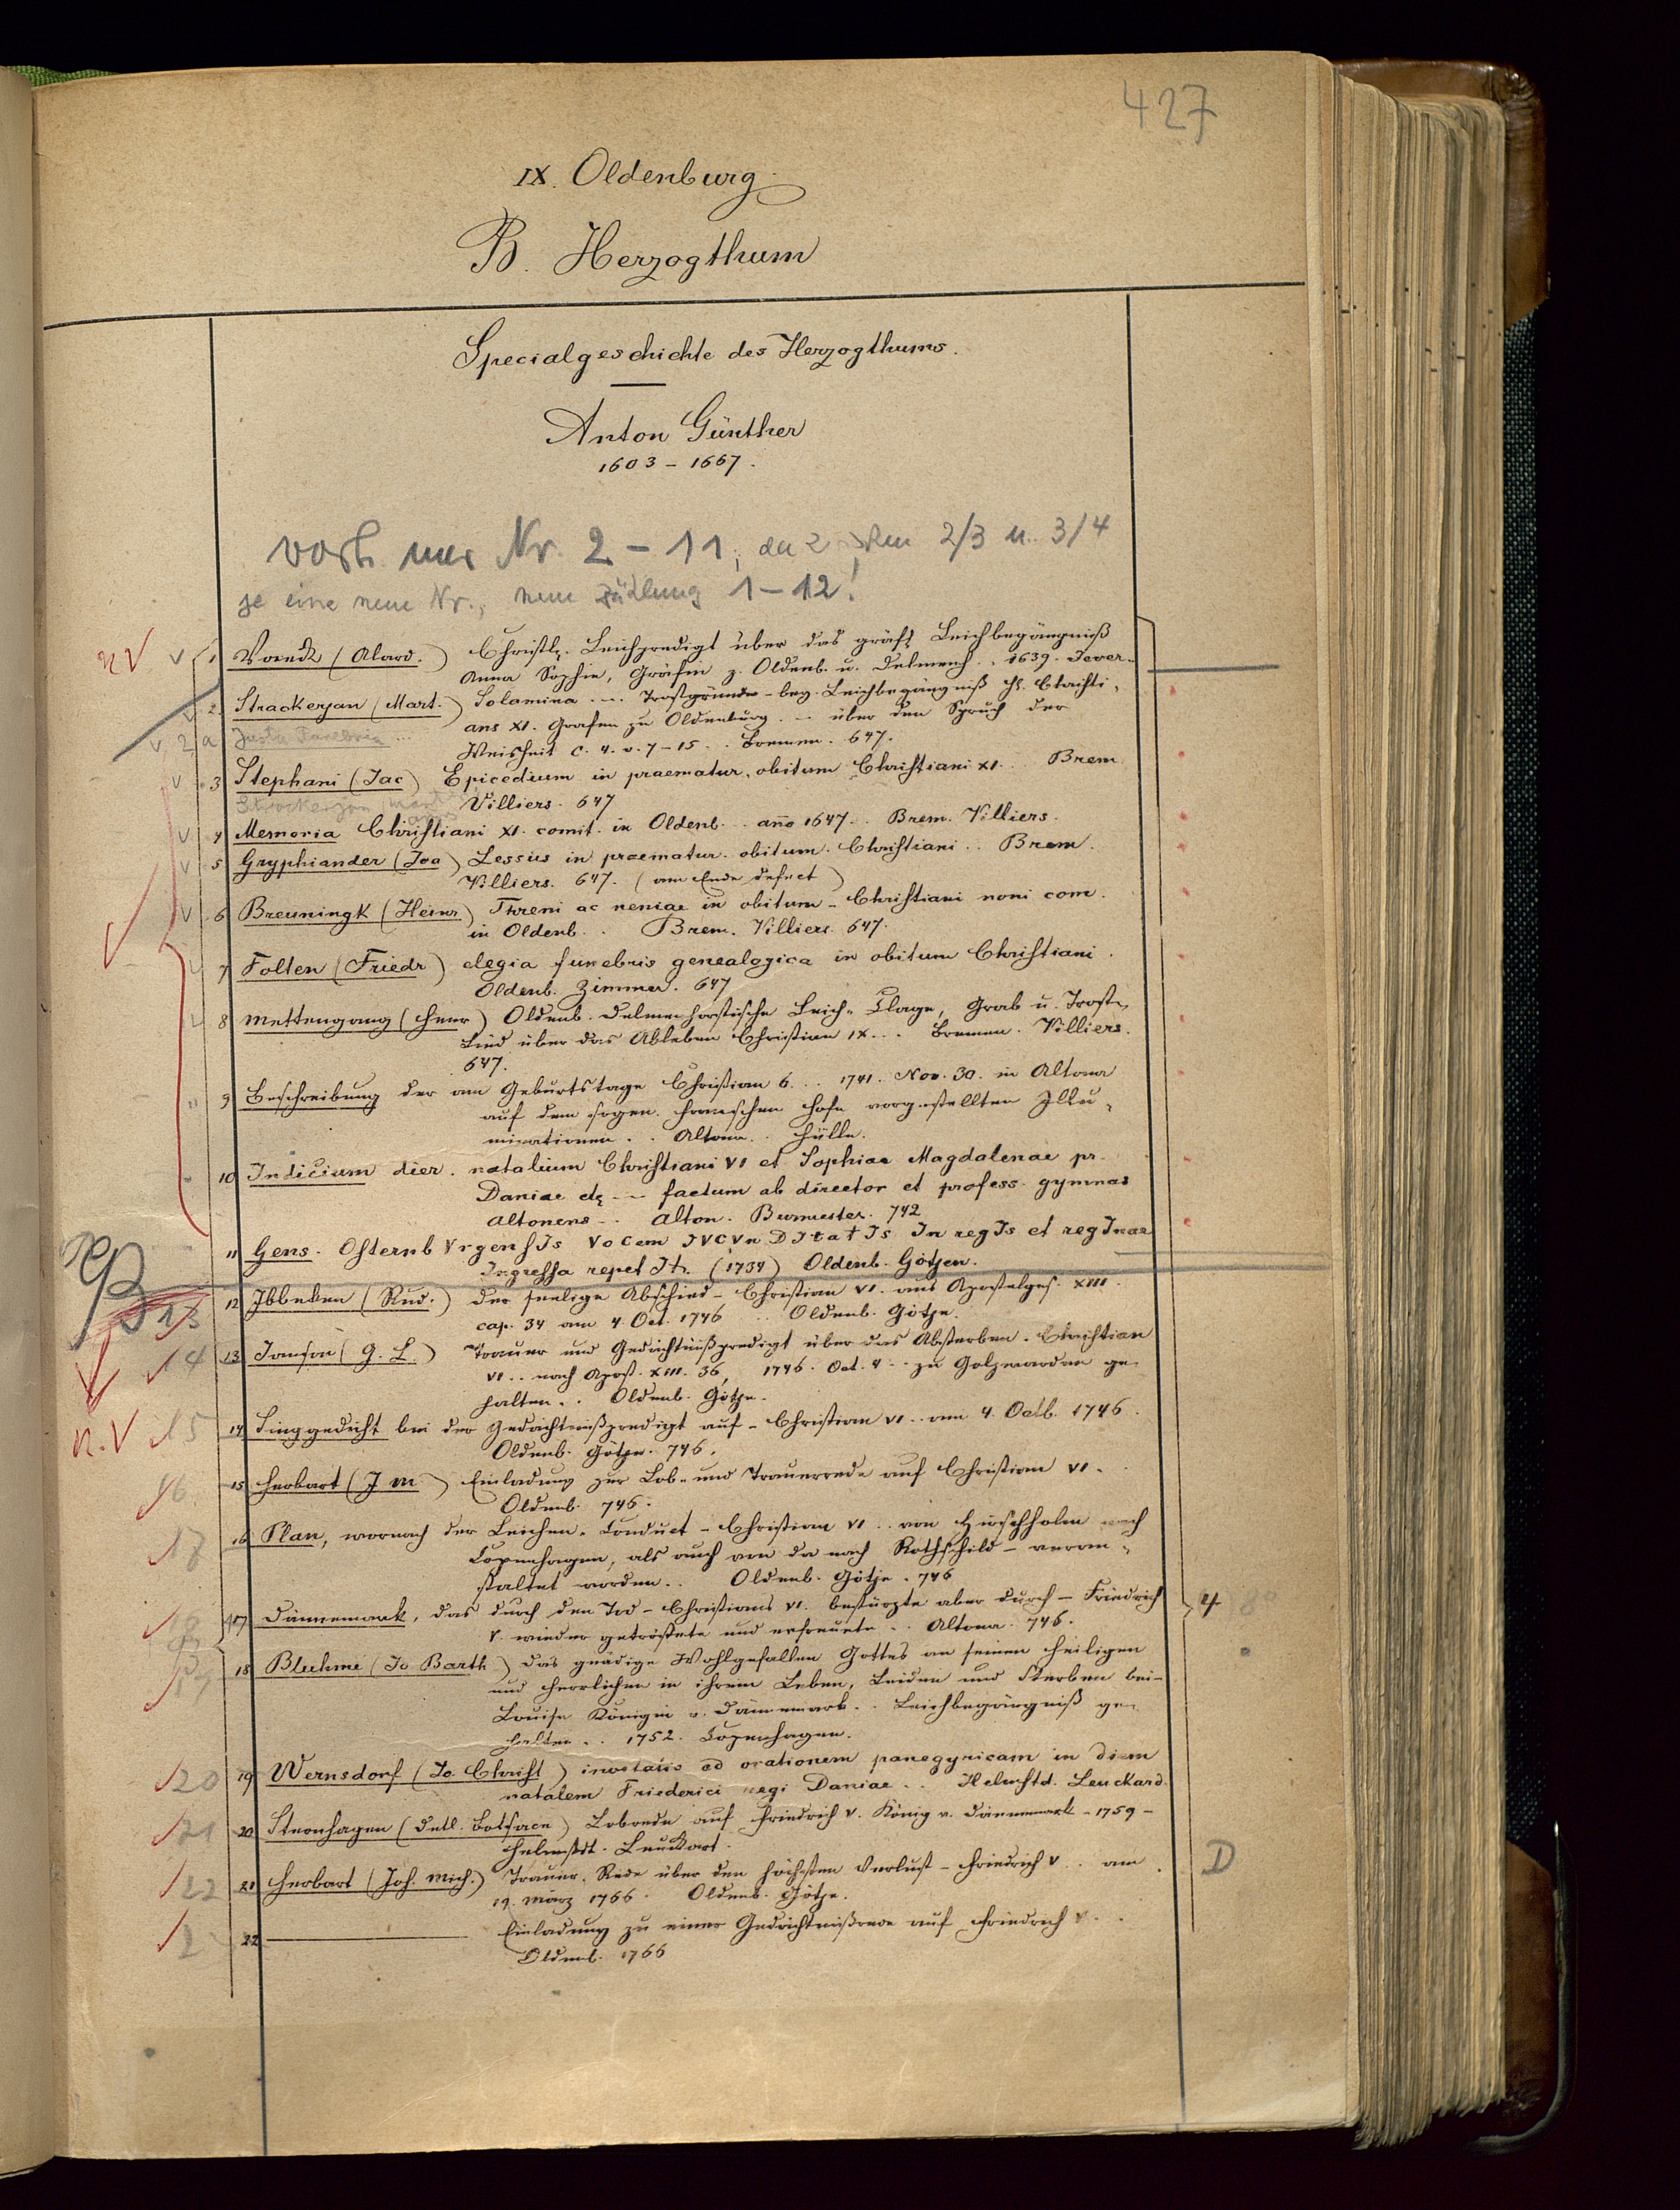 427
IX. Oldenburg.
B. Herzogthum
Specialgeschichte des Herzogthums.
Anton Günther
1603 - 1667.
vorh. nur Nr. 2 - 11, da 2/3 u. 3/4
je eine neue Nr., neue Zählung 1-12!
1 Vaeck (Alard.) Christl. Leichpredigt über das gräfl. Leichbegängniß
Anna Sophia, Gräfin z. Oldenb. u. Delmenh. . 1639. Jever.
2 Strackerjan (Mart.) Solamina ... Trostgründe - bey Leichbegängniß H. Christi-
ans XI. Grafen zu Oldenburg. - über den Spruch der
2a Justa Funebria ...
Weisheit c. 4. v. 7-15 .. Bremen. 647.
3 Stephani (Jac) Epicedium in praematur. obitum Christiani XI... Brem
Strackerjan, Mart
Villiers. 647
4 Memoria Christiani XI. comit. in Oldenb... año 1647. Brem. Villiers.
5 Gryphiander (Joa) Lessus in praematur. obitum. Christiani .. Brem.
Villiers. 647. (am Ende defect)
6 Breuningk (Heinr) Threni ac neniae in obitum - Christiani noni com.
in Oldenb. . Brem. Villiers. 647.
7 Folten (Friedr) elegia funebris genealogica in obitum Christiani.
Oldenb. Zimmer. 647
8 Mettengang (Henr) Oldenb. Delmenhorstische Leich-Clage, Grab u. Trost-
Lied über das Ableben Christian IX... Bremen. Villiers.
647.
9 Beschreibung der am Geburtstage Christian 6... 1741. Nov. 30. in Altona
auf dem sogen. Hofe vorgestellten Illu-
minationen .. Altona .. Hülle.
10 Indicium dier. natalium Christiani VI et Sophiae Magdalenae pr.
Daniae etc -- factum ab director et profess. gymnas
Altonens .. Alton. Burmester. 742
11 Gens. OsternbVrgensIs VoCem IVCVnDItatIs In regIs et regInae
Ingressa repetIt. (1734) Oldenb. Götjen.
13
12 Ibbeken (Rud.) der seelige Abschied - Christian VI. aus Apostelges. XIII.
cap. 34 am 4. Oct. 1746 .. Oldenb. Götje.
14
13 Janson (G. L.) Trauer und Gedächtnißpredigt über das Absterben. Christian
VI .. nach Apost. XIII. 36, 1746. Oct. 4 .. zu Golzwarden ge-
halten .. Oldenb. Götje.
15
14 Singgedicht bei der Gedächtnißpredigt auf - Christian VI .. am 4. Octb. 1746.
Oldenb. Götje. 746.
16
15 Herbart (J M.) Einladung zur Lob- und Trauerrede auf Christian VI..
Oldenb. 746.
17
16 Plan, wornach der Leichen-Conduct - Christian VI .. von Hirschholm nach
Copenhagen, als auch von da nach Rothschild - veran-
staltet worden .. Oldenb. Götje. 746
18
17 Dännemark, das durch den Tod - Christians VI. bestürzte aber durch - Friedrich
V. wieder getröstete und erfreuete .. Altona. 746.
4
18 Bluhme (Jo Barth) das gnädige Wohlgefallen Gottes an seinen Heiligen
und Herrlichen in ihrem Leben, Leiden und Sterben bei -
Louise Königin v. Dännemark .. Leichbegängniß ge-
halten .. 1752. Copenhagen.
20
19 Wernsdorf (Jo. Christ) invitatio ad orationem panegyricam in diem
natalem Friederici regi Daniae .. Helmstd. Leuckard.
21
20 Steenhagen (Detl. Botsack) Lobrede auf Friedrich V. König v. Dännemark - 1759 -
Helmstdt. Leuckart.
22
21 Herbart (Joh. Mich.) Trauer-Rede über den höchsten Verlust - Friedrich V .. am
19. März 1766. Oldenb. Götje.
D
22 Einladung zu einer Gedächtnißrede auf Friedrich V..
Oldenb. 1766